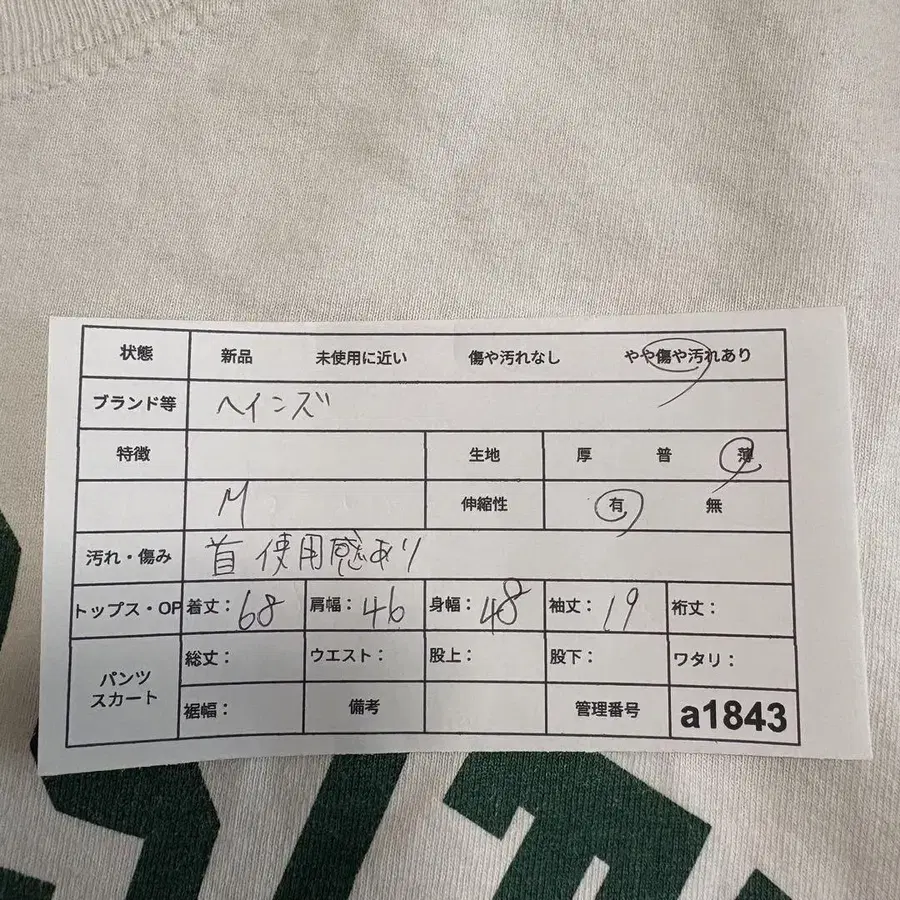 状態 新品 未使用に近い 傷や汚れなし やや傷や汚れあり
ブランド等 ヘインズ
特徴 生地 厚 普 薄
M 伸縮性 有 無
汚れ・傷み 首 使用感あり
トップス・OP 着丈：68 肩幅：46 身幅：48 袖丈：19 裄丈：
パンツ スカート 総丈： ウエスト： 股上： 股下： ワタリ：
裾幅： 備考 管理番号 a1843